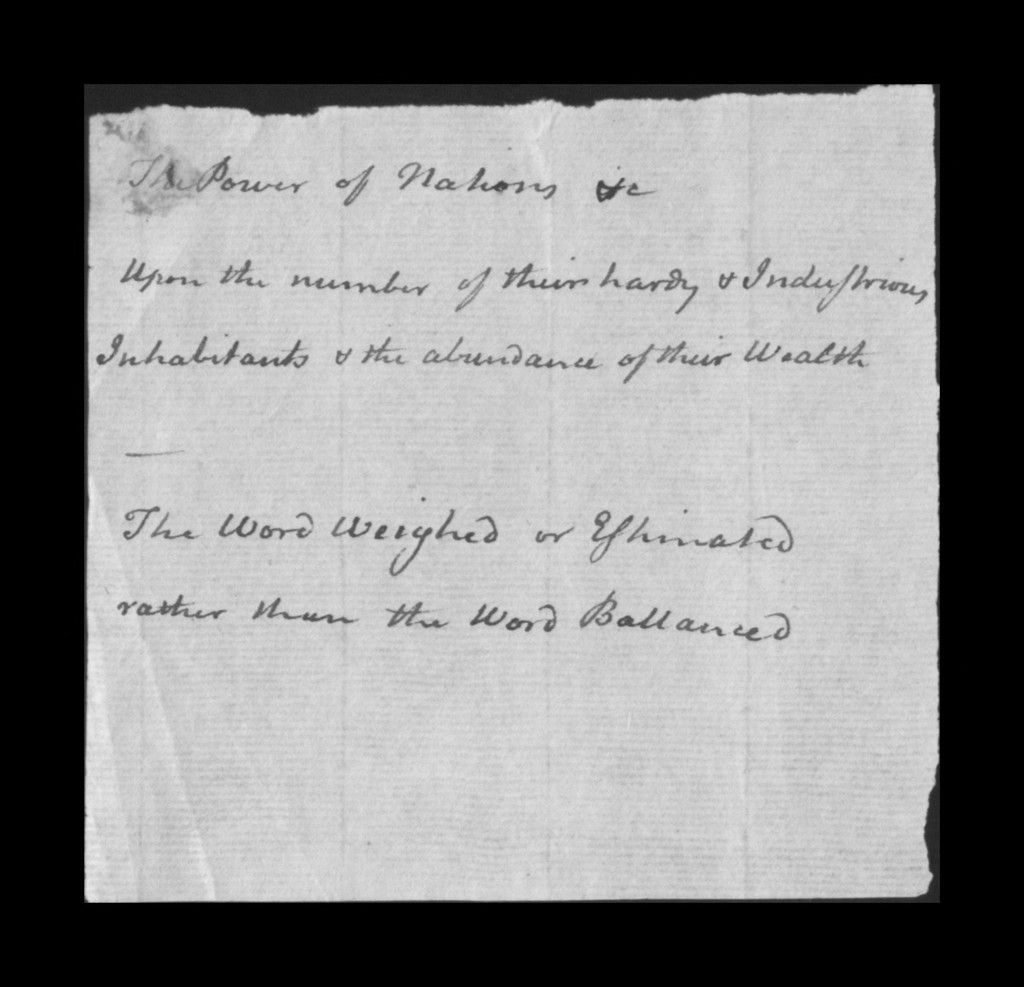 The Power of Nations &c
Upon the number of their hardy & Industrious
Inhabitants & the abundance of their Wealth
—
The Word Weighed or Estimated
rather than the Word Ballanced